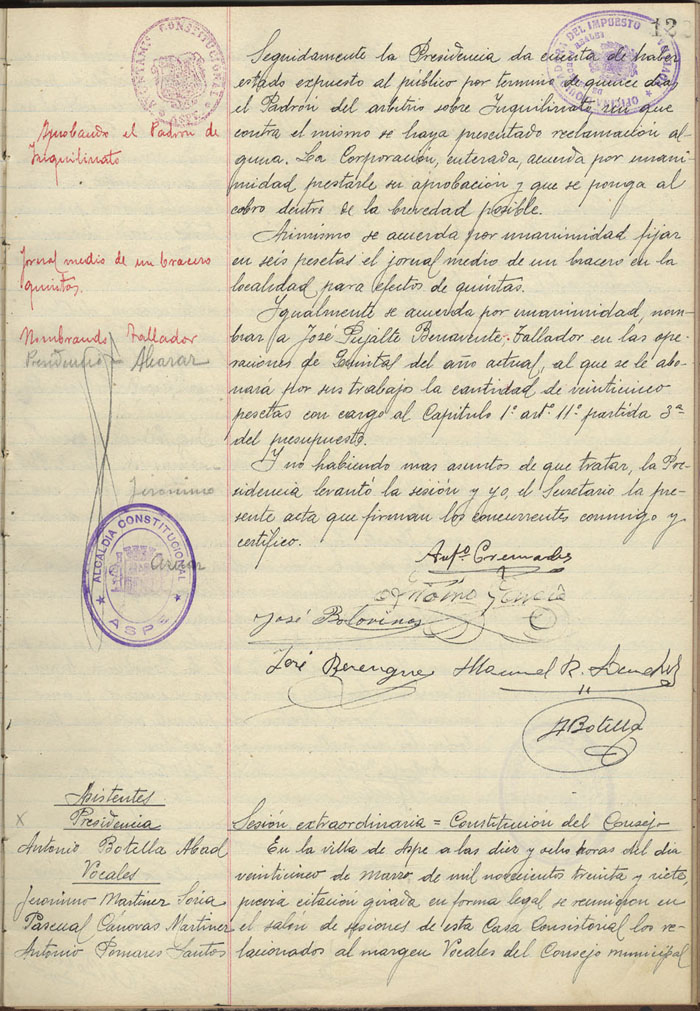 12
AYUNTAMIENTO CONSTITUCIONAL
Seguidamente la Presidencia da cuenta de haber
estado expuesto al público por termino de quince dias
el Padrón del arbitrio sobre Inquilinato sin que
contra el mismo se haya presentado reclamación al-
guna. La Corporación, enterada, acuerda por unani-
midad prestarle su aprobación y que se ponga al
cobro dentro de la brevedad posible.
Aprobando el Padron de
Inquilinato
Asimismo se acuerda por unanimidad fijar
en seis pesetas el jornal medio de un bracero en la
localidad para efectos de quintas.
Jornal medio de un bracero
quintas.
Igualmente se acuerda por unanimidad, nom-
brar a José Pujalte Benavente, Tallador en las ope-
raciones de Quintas del año actual, al que se le abo-
nará por sus trabajo la cantidad de veinticinco
pesetas con cargo al Capitulo 1º artº 11º partida 3ª
del presupuesto.
Nombrando Tallador
Presidencia Alcaraz
Y no habiendo mas asuntos de que tratar, la Pre-
sidencia levantó la sesión y yo, el Secretario la pre-
sente acta que firman los concurrentes conmigo y
certifico.
Jeronimo
ALCALDIA CONSTITUCIONAL
ASPE
Antº Cremades
Antonio
José Bolovinos
José Berenguer Manuel R.
A Botella
Asistentes
Presidencia
Antonio Botella Abad
Vocales
Jeronimo Martinez Soria
Pascual Cánovas Martinez
Antonio Pomares Santos
Sesión extraordinaria = Constitucion del Consejo
En la villa de Aspe a las diez y ocho horas del dia
veinticinco de Marzo, de mil novecientos treinta y siete,
previa citación girada en forma legal se reunieron en
el salón de sesiones de esta Casa Consistorial los re-
lacionados al margen Vocales del Consejo municipal